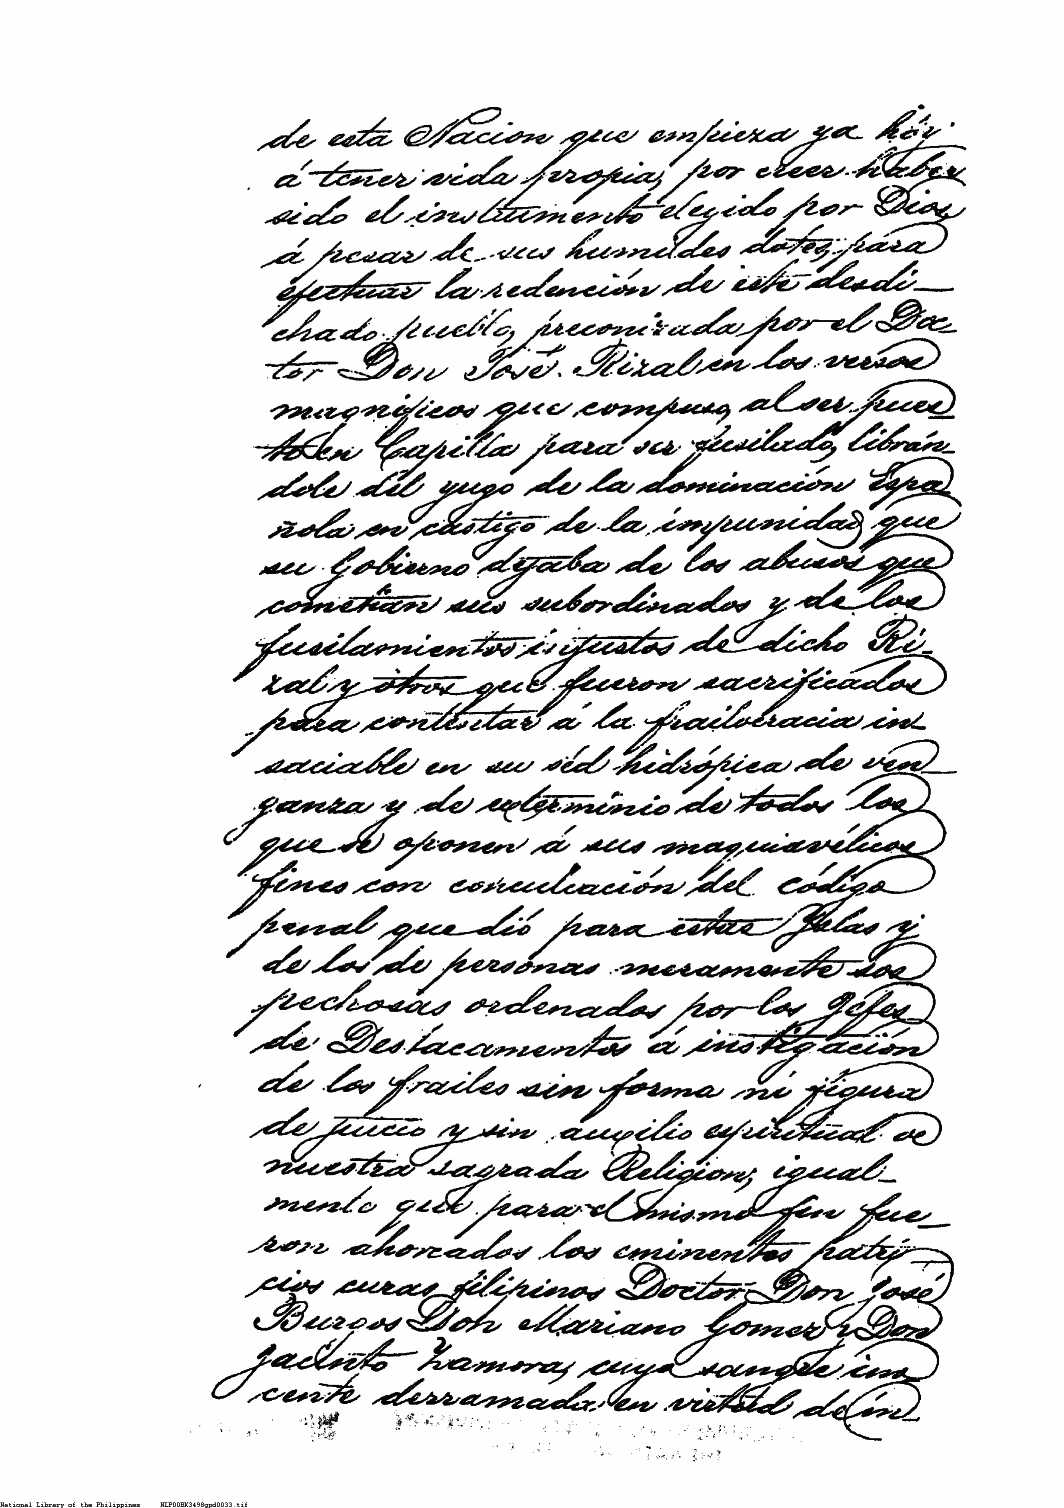 de esta Nacion que empieza ya hoy
á tener vida propia, por creer haber
sido el instrumento elegido por Dios,
á pesar de sus humildes dotes, para
efectuar la redención de este desdi-
chado pueblo, preconizada por el Doc-
tor Don José Rizal en los versos
magníficos que compuso, al ser pues
to en Capilla para ser fusilado, librán-
dole del yugo de la dominación Espa
ñola en castigo de la impunidad que
su Gobierno dejaba de los abusos que
cometian sus subordinados y de los
fusilamientos injustos de dicho Ri-
zal y otros que fueron sacrificados
para contentar á la frailocracia in-
saciable en su séd hidrópica de ven-
ganza y de exterminio de todos los
que se oponen á sus maquiavélicos
fines con conculcación del código
penal que dió para estas Yslas y
de los de personas meramente sos
pechosas ordenados por los Géfes
de Destacamentos á instigación
de los frailes sin forma ni figura
de juicio y sin auxilio espiritual de
nuestra sagrada Religion; igual-
mente que para el mismo fin fue-
ron ahorcados los eminentes patri-
cios curas filipinos Doctor Don José
Burgos Don Mariano Gomez y Don
Jacinto Zamora, cuya sangre ino
cente derramada en virtud de in
National Library of the Philippines NLP00BK3498gpd0033.tif